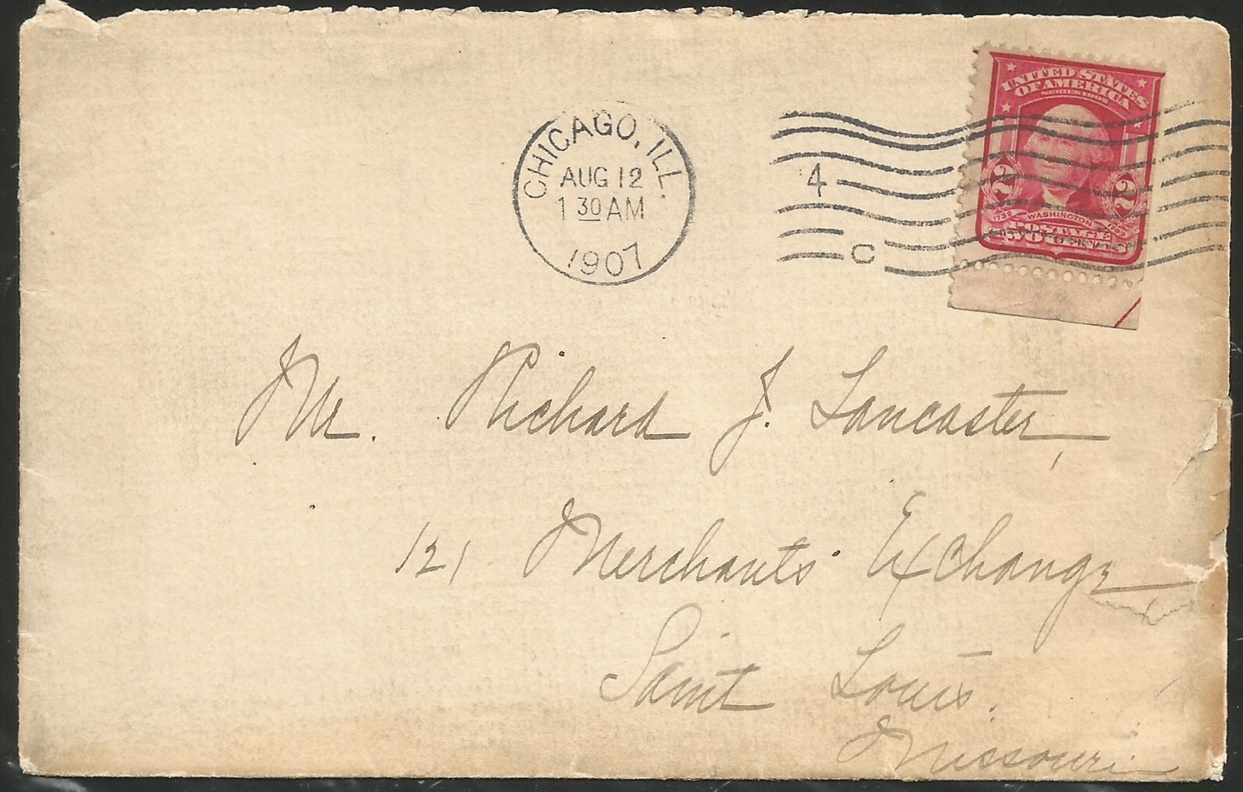 CHICAGO, ILL.
AUG 12
1 30 AM
1907
4
C
UNITED STATES
OF AMERICA
SERIES 1902
2 2
1732 WASHINGTON 1799
POSTAGE
TWO CENTS
Mr. Richard J. Lancaster,
121 Merchants' Exchange
Saint Louis.
Missouri